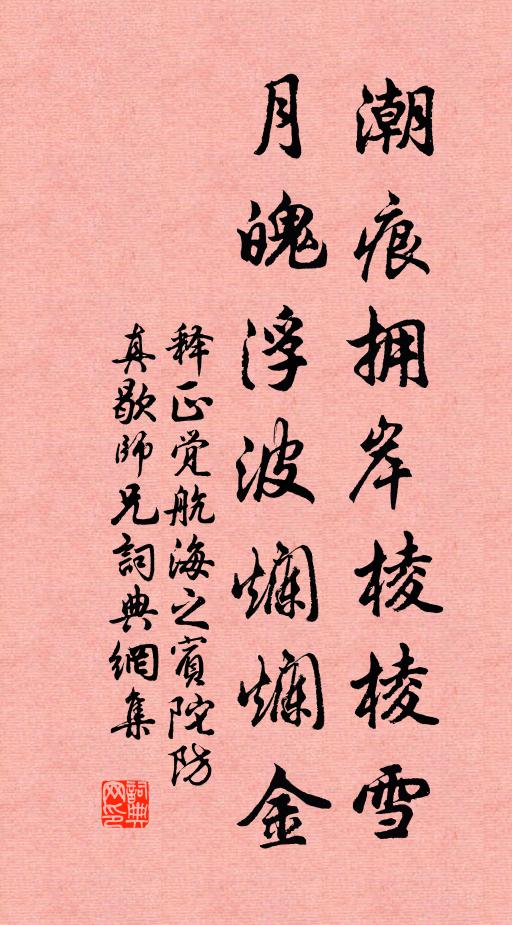 潮痕拥岸棱棱雪
月魄浮波爛爛金
释正觉航海之賓陀防
真歇師兄詞典網集
詞典网印